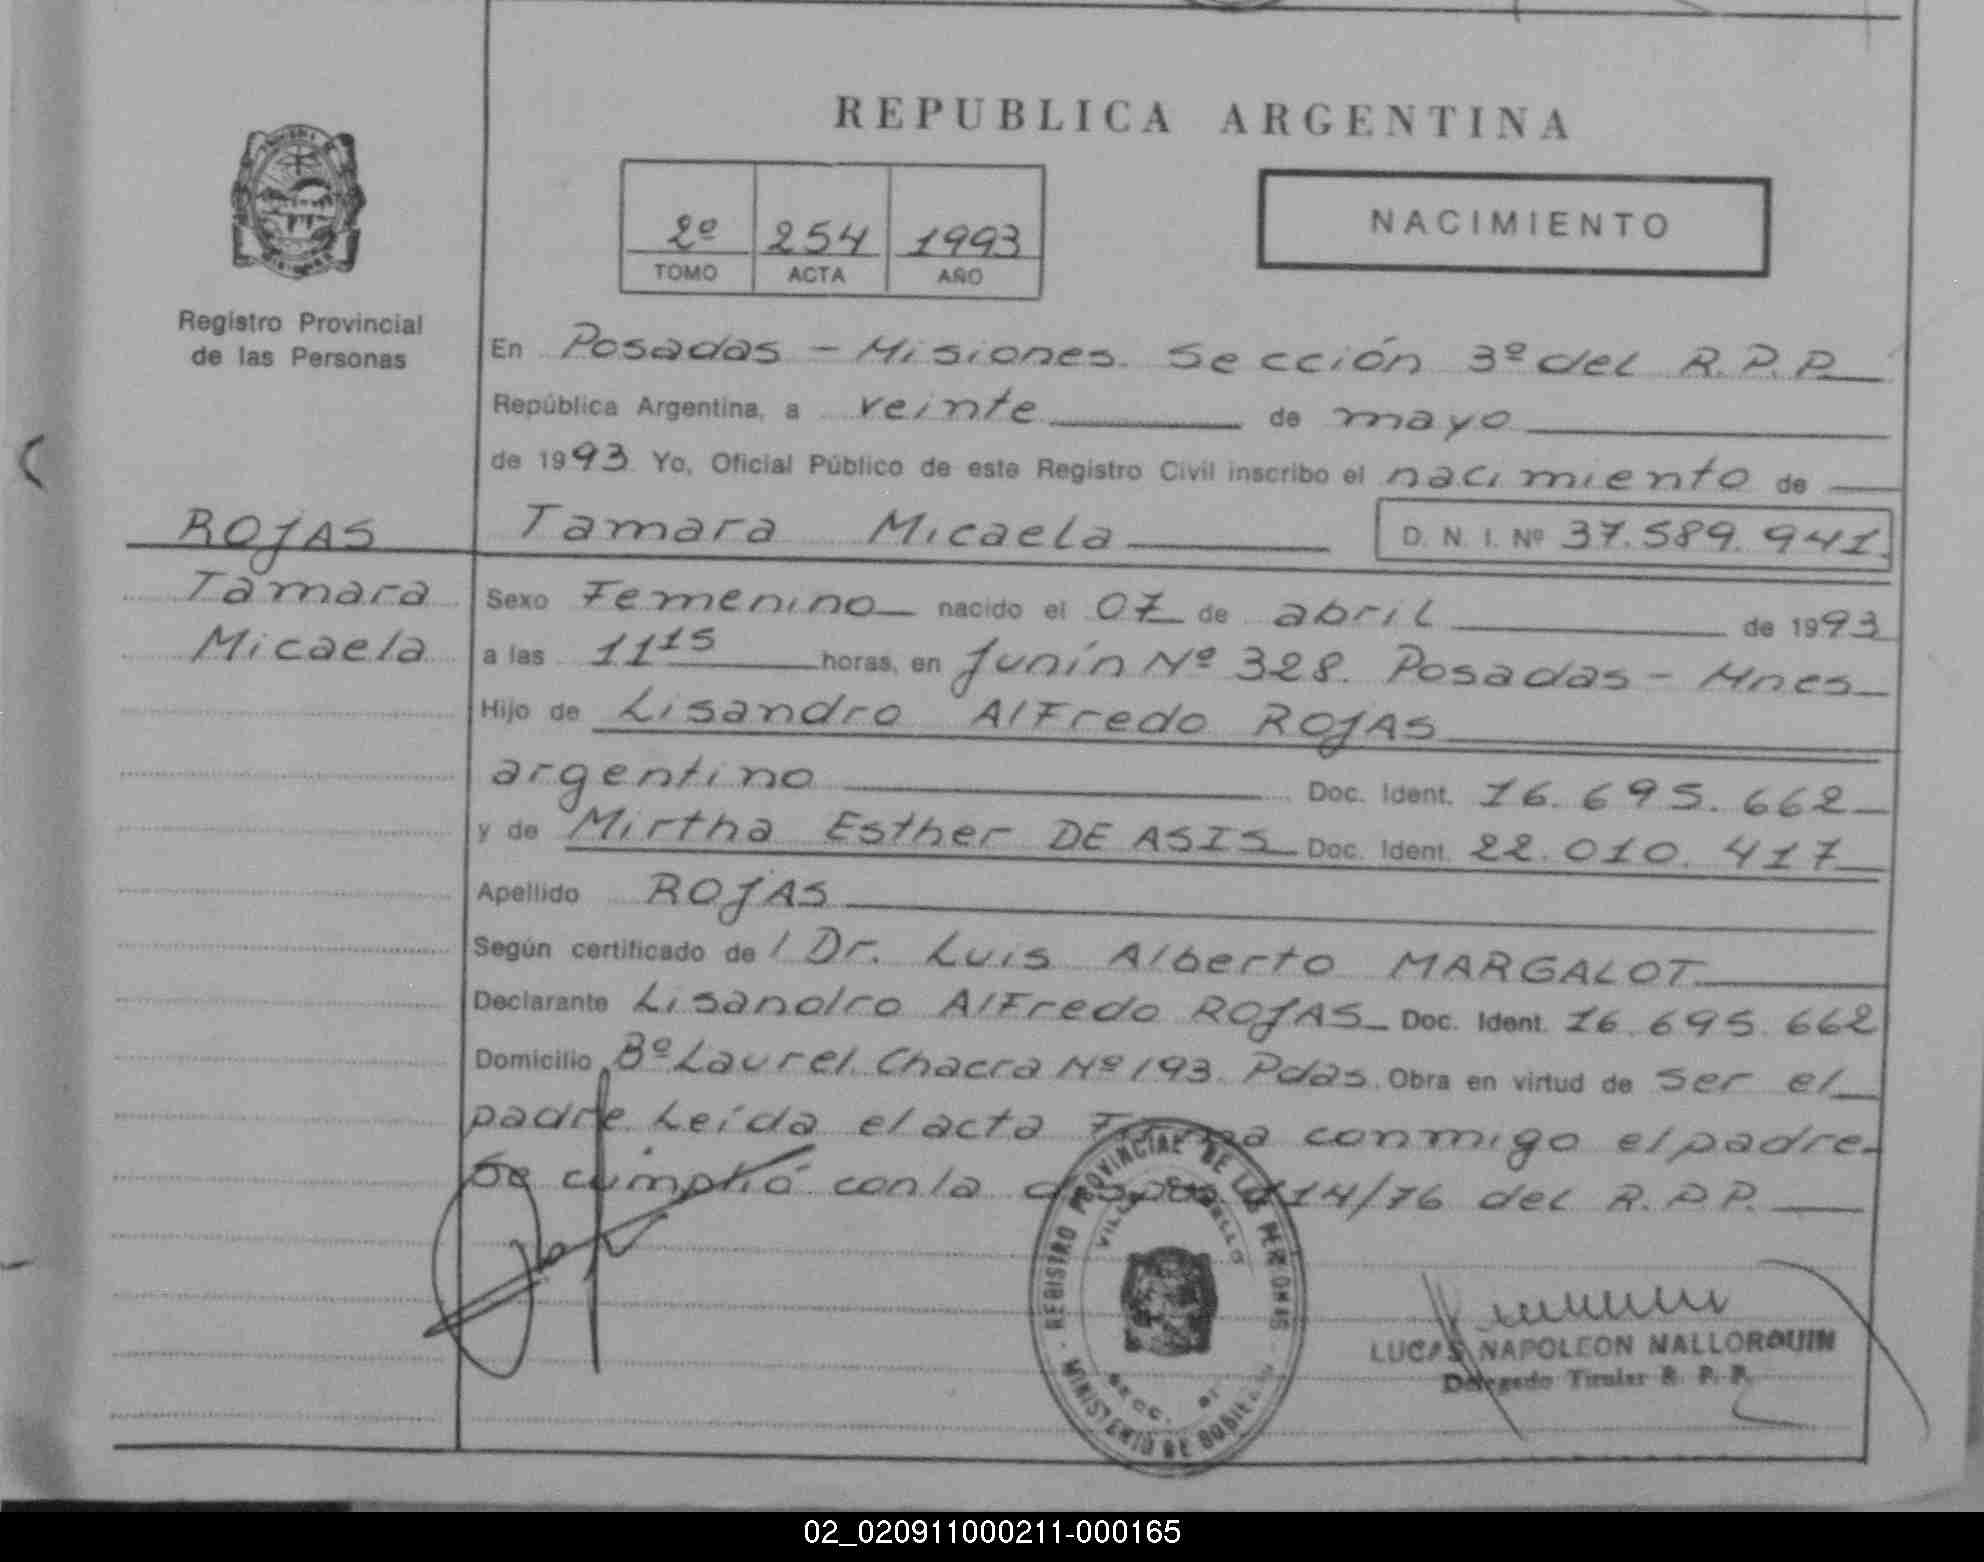 REPUBLICA ARGENTINA
2º 254 1993
TOMO ACTA AÑO
NACIMIENTO
Registro Provincial
de las Personas
En Posadas - Misiones. Sección 3º del R.P.P.
República Argentina, a veinte de mayo
de 1993 Yo, Oficial Público de este Registro Civil inscribo el nacimiento de
ROJAS
Tamara
Micaela
Tamara Micaela D. N. I. Nº 37.589.941
Sexo Femenino nacido el 07 de abril de 1993
a las 11 15 horas, en Junín Nº 328. Posadas - Mnes
Hijo de Lisandro Alfredo ROJAS
argentino Doc. Ident. 16.695.662
y de Mirtha Esther DE ASIS Doc. Ident. 22.010.417
Apellido ROJAS
Según certificado de l Dr. Luis Alberto MARGALOT
Declarante Lisandro Alfredo ROJAS Doc. Ident. 16.695.662
Domicilio Bº Laurel. Chacra Nº 193. Pdas. Obra en virtud de ser el
padre. Leída el acta Firma conmigo el padre.
Se cumplió con la 14/76 del R.P.P.
REGISTRO PROVINCIAL DE LAS PERSONAS
MINISTERIO DE GOBIERNO
SECC.
LUCAS NAPOLEON MALLORQUIN
Delegado Titular R. P. P.
02_020911000211-000165